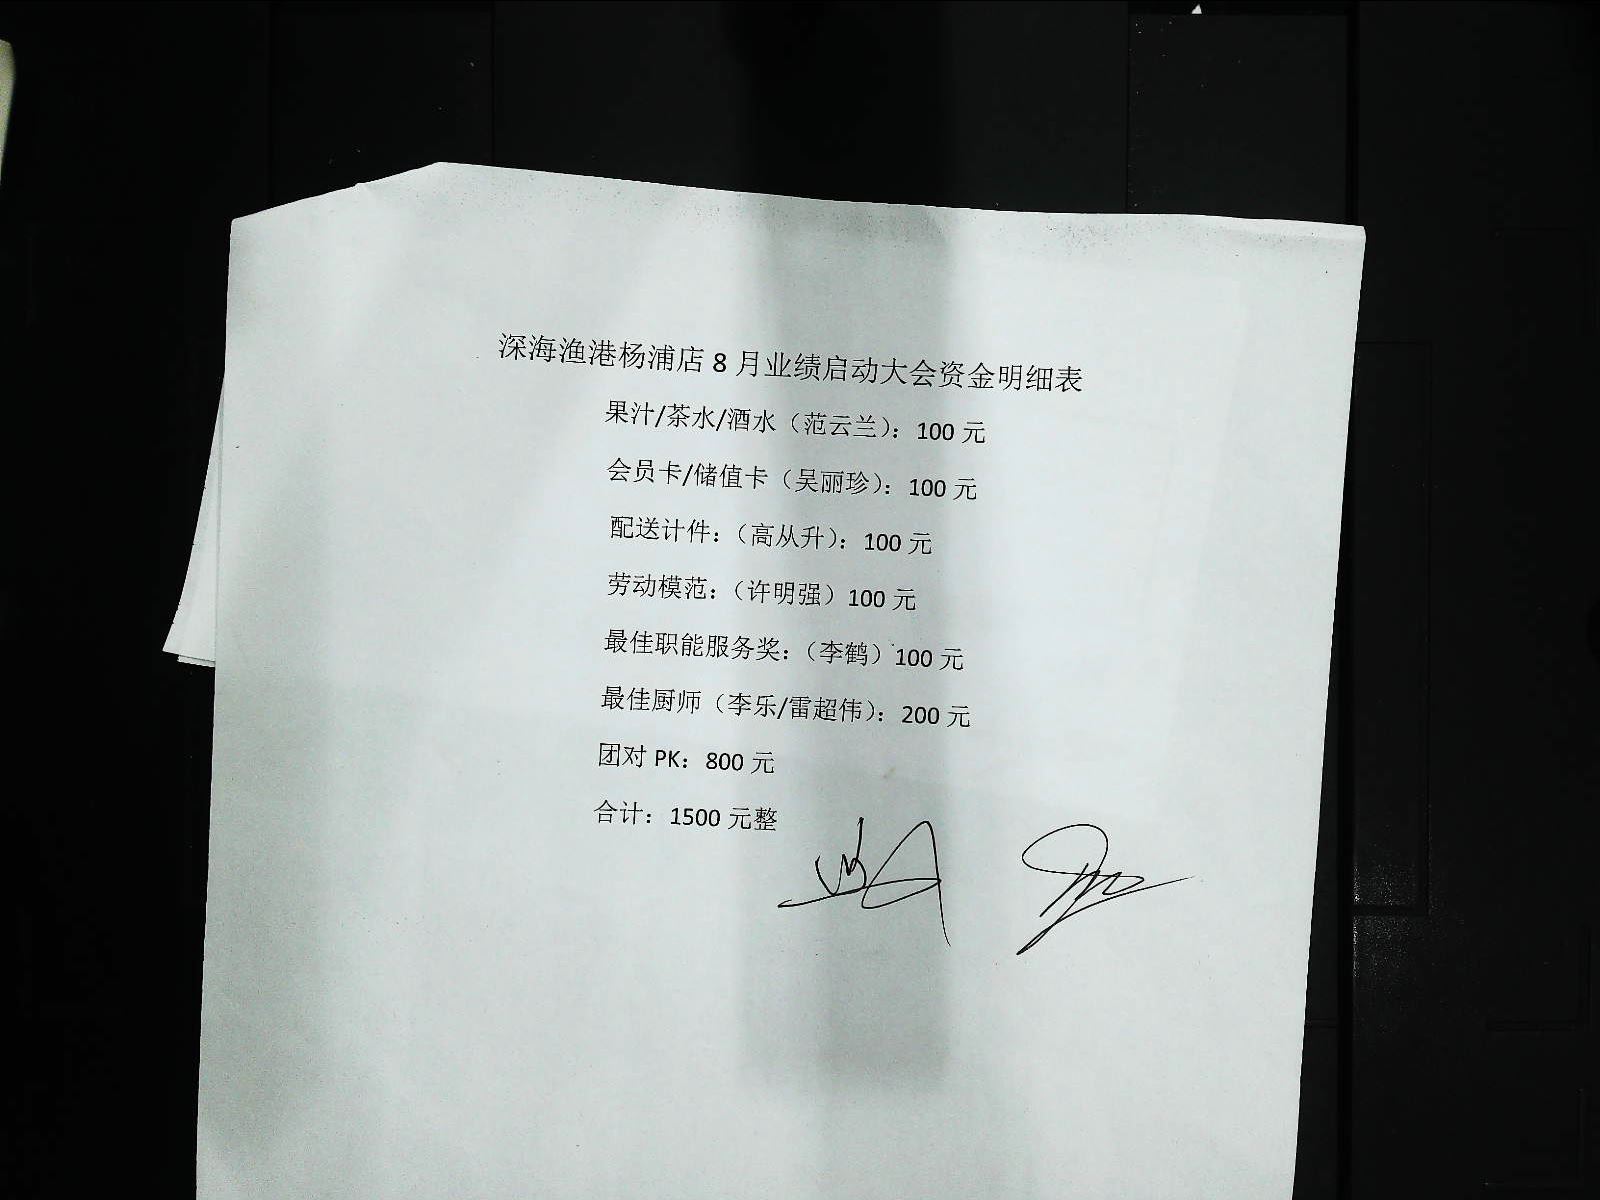 深海渔港杨浦店 8 月业绩启动大会资金明细表
果汁/茶水/酒水（范云兰）：100 元
会员卡/储值卡（吴丽珍）：100 元
配送计件：（高从升）：100 元
劳动模范：（许明强）100 元
最佳职能服务奖：（李鹤）100 元
最佳厨师（李乐/雷超伟）：200 元
团对 PK：800 元
合计：1500 元整